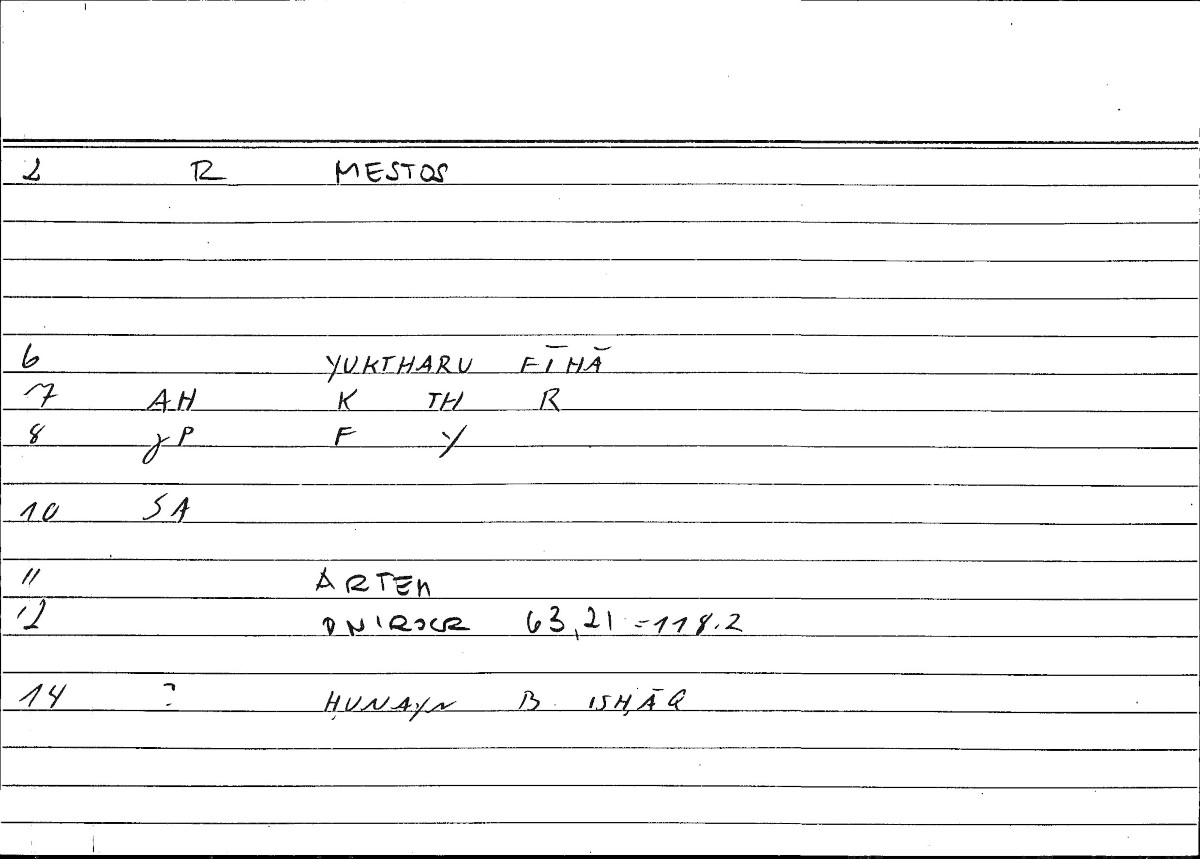 2 R MESTOS
6 YUKTHARU FĪHĀ
7 AH K TH R
8 γP F Y
10 SA
11 ARTEM
12 63,21 = 118.2
14 ? ḤUNAYN B. ISḤĀQ